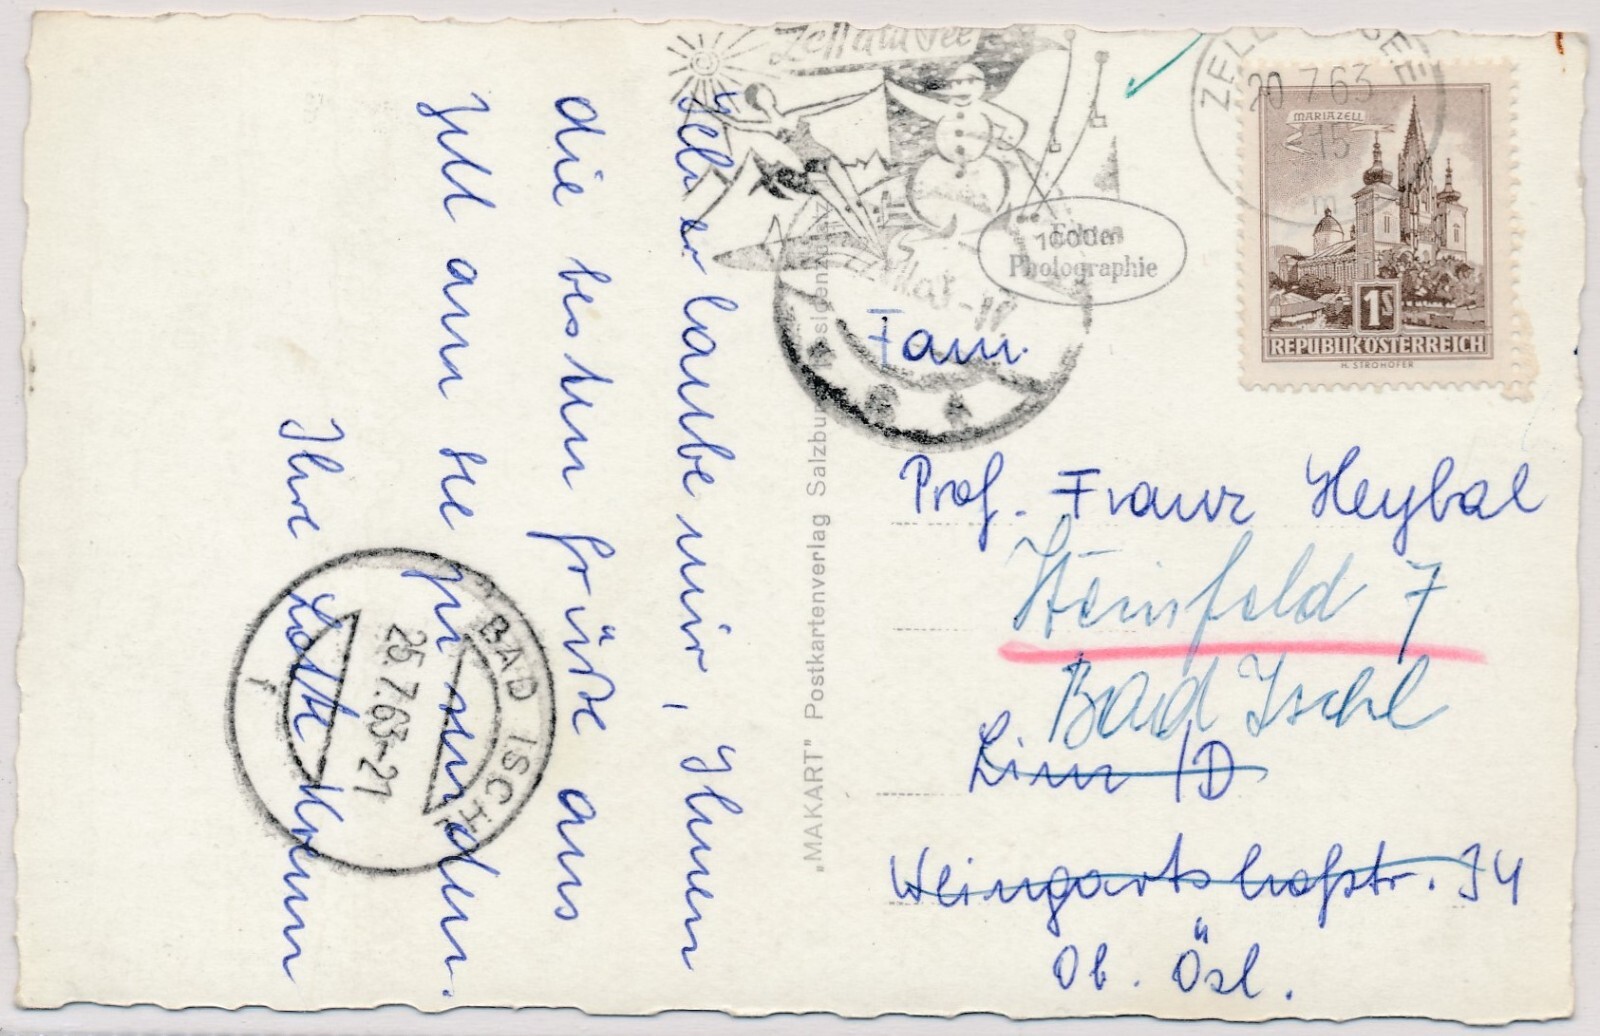 Ich erlaube mir, Ihnen
die besten Grüße aus
Zell am See zu senden.
Ihre Lotte
"MAKART" Postkartenverlag Salzburg
Zell am See
ZELL SEE
20 7 63
15
m
1000m
Echte
Photographie
MARIAZELL
1S
REPUBLIK ÖSTERREICH
H. STROHOFER
Fam.
Prof. Franz Heybal
Steinfeld 7
Bad Ischl
Linz /D
Weingartshofstr. 34
Ob. Öst.
BAD ISCHL
25.7.63-21
f